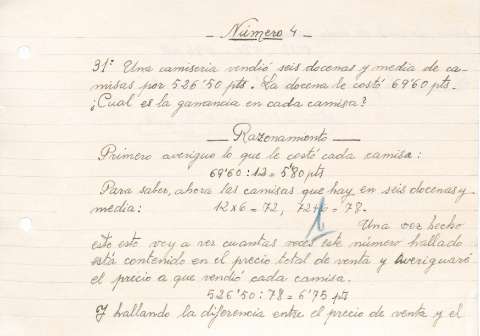 — Número 4 —
31º Una camiseria vendió seis docenas y media de ca-
misas por 526'50 pts. La docena le costó 69'60 pts.
¿Cual es la ganancia en cada camisa?
— Razonamiento —
Primero averiguo lo que le costó cada camisa:
69'60 : 12 = 5'80 pts
Para saber, ahora las camisas que hay en seis docenas y
media: 12 x 6 = 72, 72 + 6 = 78.
Una vez hecho
esto voy a ver cuantas veces este número hallado
está contenido en el precio total de venta y averiguaré
el precio a que vendió cada camisa.
526'50 : 78 = 6'75 pts
Y hallando la diferencia entre el precio de venta y el